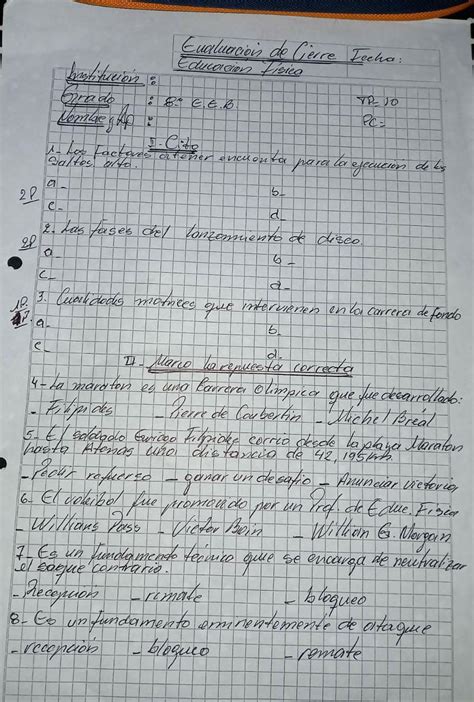 Evaluación de Cierre Fecha:
Educacion Fisica
Institución :
Grado : 8º E.E.B. TP=10
Nombre y Ap : PC=
I- Cito
1- Los Factores a tener encuenta para la ejecucion de los
Saltos alto.
a- b-
2P c- d-
2. Las fases del lanzamiento de disco.
2P a- b-
c- d-
1P 3. Cualidades motrices que intervienen en la carrera de fondo
a- b.
c- d.
II- Marco la repuesta correcta
4- La maraton es una Carrera Olimpica que fue desarrollado:
- Filipides - Pierre de Coubertin - Michel Bréal
5- El soldado Griego Filipides corrio desde la playa Maraton
hasta Atenas una distancia de 42,195km
- Pedir refuerso - ganar un desafio - Anunciar victoria
6- El voleibol fue promovido por un Prof. de Educ. Fisica
- Willians Pass - Victor Bein - Willian G. Morgan
7- Es un fundamento tecnico que se encarga de neutralizar
el saque contrario.
- Recepcion - remate - bloqueo
8- Es un fundamento eminentemente de ataque
- recepción - bloqueo - remate